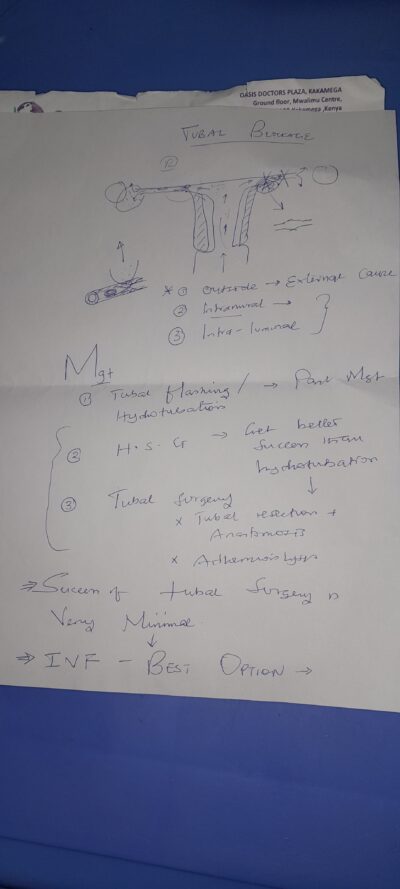 OASIS DOCTORS PLAZA, KAKAMEGA
Ground floor, Mwalimu Centre,
Kakamega, Kenya
TUBAL BLOCKAGE
* ① Outside → External Cause
② Intramural →
③ Intra-luminal
Mgt
① Tubal flashing / → Part Mgt
Hydrotubation
② H.S.G → Get better
Success than
hydrotubation
③ Tubal Surgery
x Tubal resection +
Anastomosis
x
⇒ Success of tubal Surgery is
Very Minimal
⇒ INF - BEST OPTION →